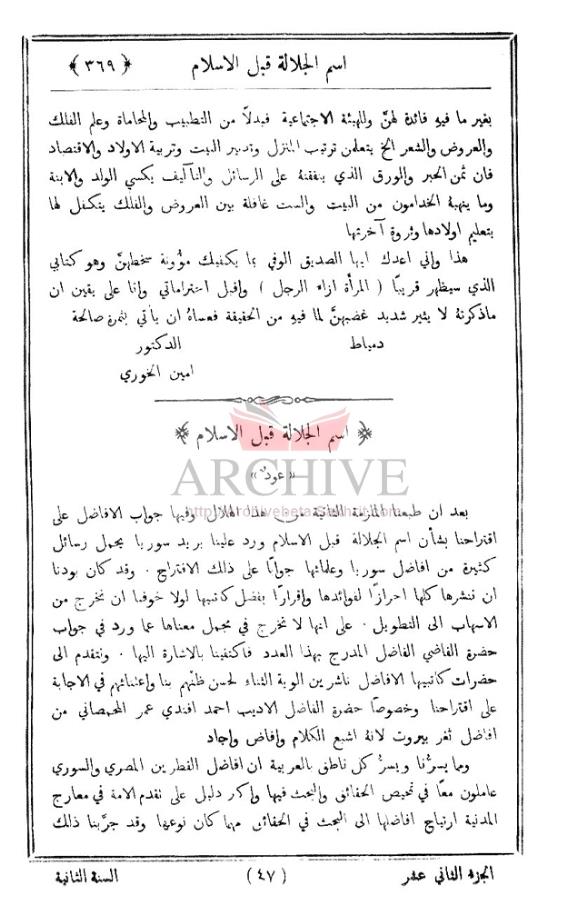 اسم الجلالة قبل الاسلام ﴿ ٣٦٩ ﴾
بغير ما فيهِ فائدة لهنَّ وللهيئة الاجتماعية فبدلاً من التطبيب والمحاماة وعلم الفلك
والعروض والشعر الخ يتعلمن ترتيب المنزل وتدبير البيت وتربية الاولاد والاقتصاد
فان ثمن الحبر والورق الذي ينفقنهُ على الرسائل والتآليف يكسي الولد والابنة
وما ينهبهُ الخدامون من البيت والست غافلة بين العروض والفلك يتكفل لها
بتعليم اولادها وثروة آخرتها
هذا واني اعدك ايها الصديق الوفي بما يكفيك مؤونة سخطهنَّ وهو كتابي
الذي سيظهر قريبًا ( المرأة ازاء الرجل ) واقبل احتراماتي وانا على يقين ان
ماذكرتهُ لا يثير شديد غضبهنَّ لما فيهِ من الحقيقة فعساهُ ان يأتي بثمرة صالحة
دمياط الدكتور
امين الخوري
﴿ اسم الجلالة قبل الاسلام ﴾
ARCHIVE
« عودٌ »
بعد ان طبعنا الملزمة الثانية من هذا الهلال وفيها جواب الافاضل على
اقتراحنا بشأن اسم الجلالة قبل الاسلام ورد علينا بريد سوريا يحمل رسائل
كثيرة من افاضل سوريا وعلمائها جوابًا على ذلك الاقتراح . وقد كان بودنا
ان ننشرها كلها احرازًا لفوائدها واقرارًا بفضل كاتبيها لولا خوفنا ان نخرج من
الاسهاب الى التطويل . على انها لا تخرج في مجمل معناها عما ورد في جواب
حضرة القاضي الفاضل المدرج بهذا العدد فاكتفينا بالاشارة اليها . ونتقدم الى
حضرات كاتبيها الافاضل ناشرين الوية الثناء لحسن ظنهم بنا واعتنائهم في الاجابة
على اقتراحنا وخصوصًا حضرة الفاضل الاديب احمد افندي عمر المحمصاني من
افاضل ثغر بيروت لانهُ اشبع الكلام وافاض واجاد
ومما يسرُّنا ويسرُّ كل ناطق بالعربية ان افاضل القطرين المصري والسوري
عاملون معًا في تمحيص الحقائق والبحث فيها واكبر دليل على تقدم الامة في معارج
المدنية ارتياح افاضلها الى البحث في الحقائق مهما كان نوعها وقد جرَّبنا ذلك
الجزء الثاني عشر ( ٤٧ ) السنة الثانية